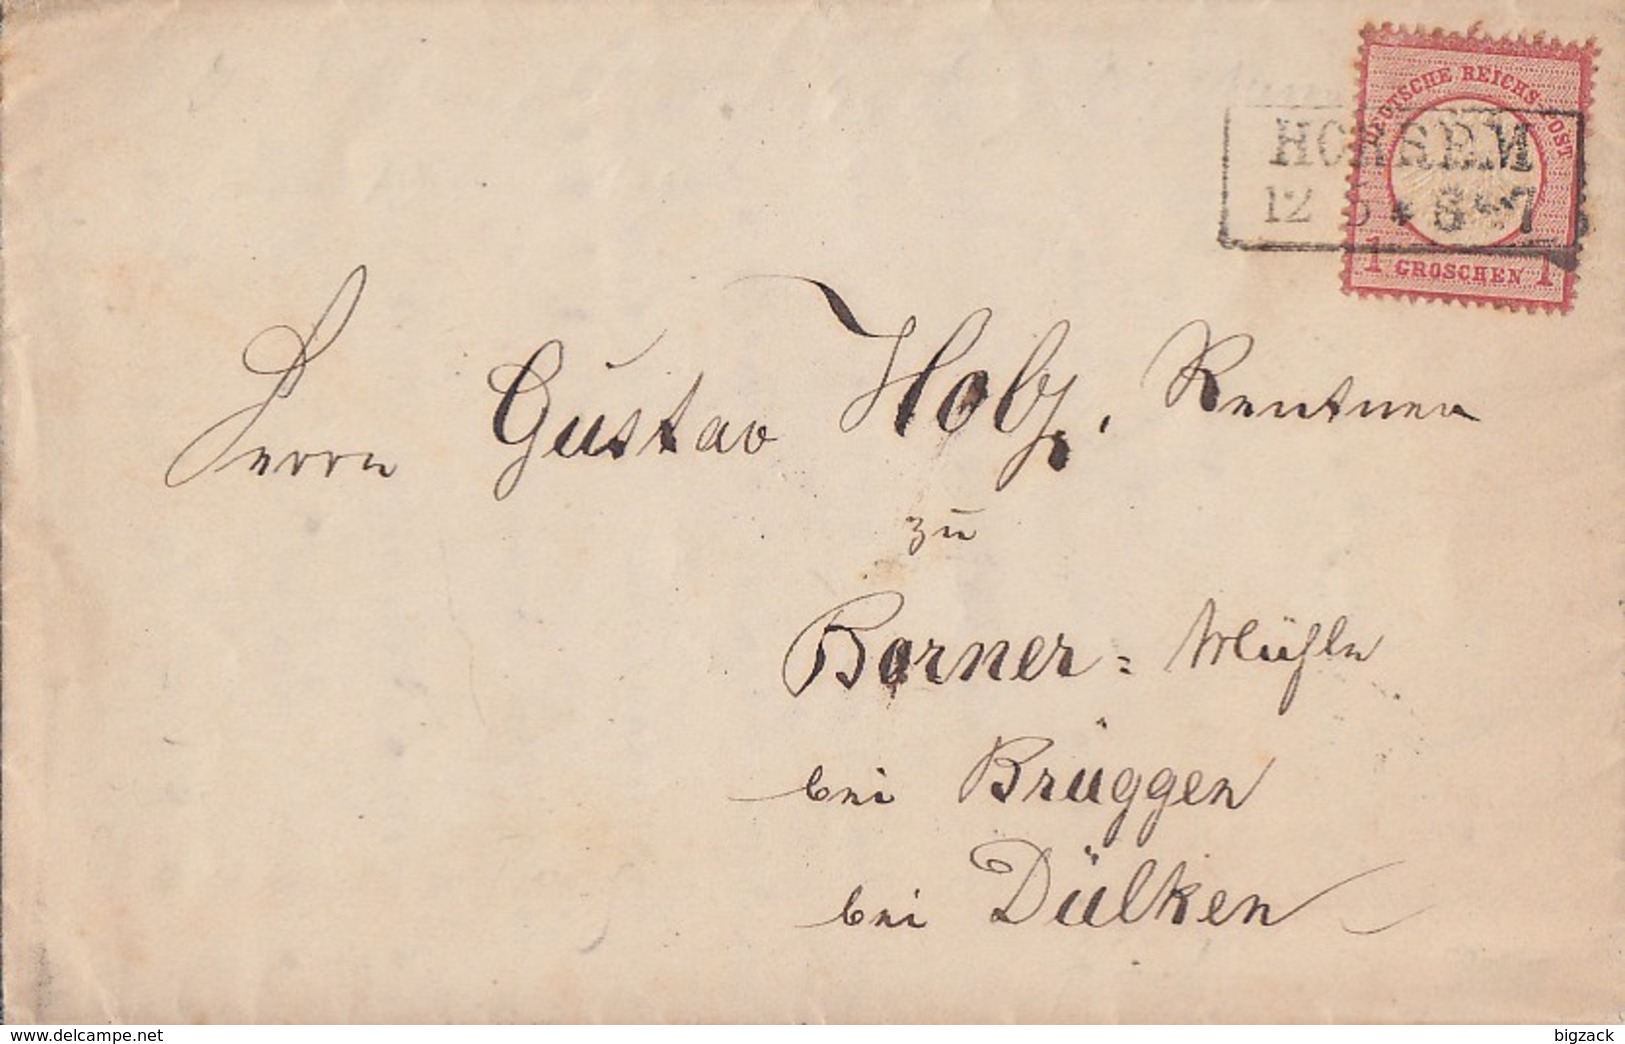 DEUTSCHE REICHS-POST
HORREM
12 5 * 6-7
1 GROSCHEN 1
Herrn Gustav Holz, Rentner
zu
Borner= Mühle
bei Brüggen
bei Dülken
www.delcampe.net
bigzack